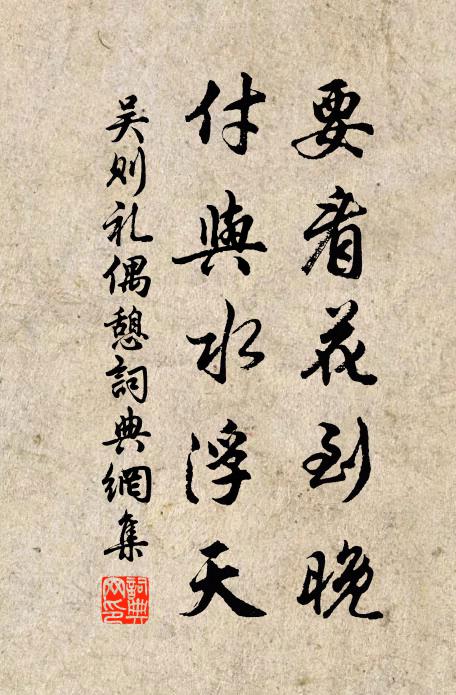 要看花到晚
付與水浮天
吴则礼偶憩詞典網集
詞典網印